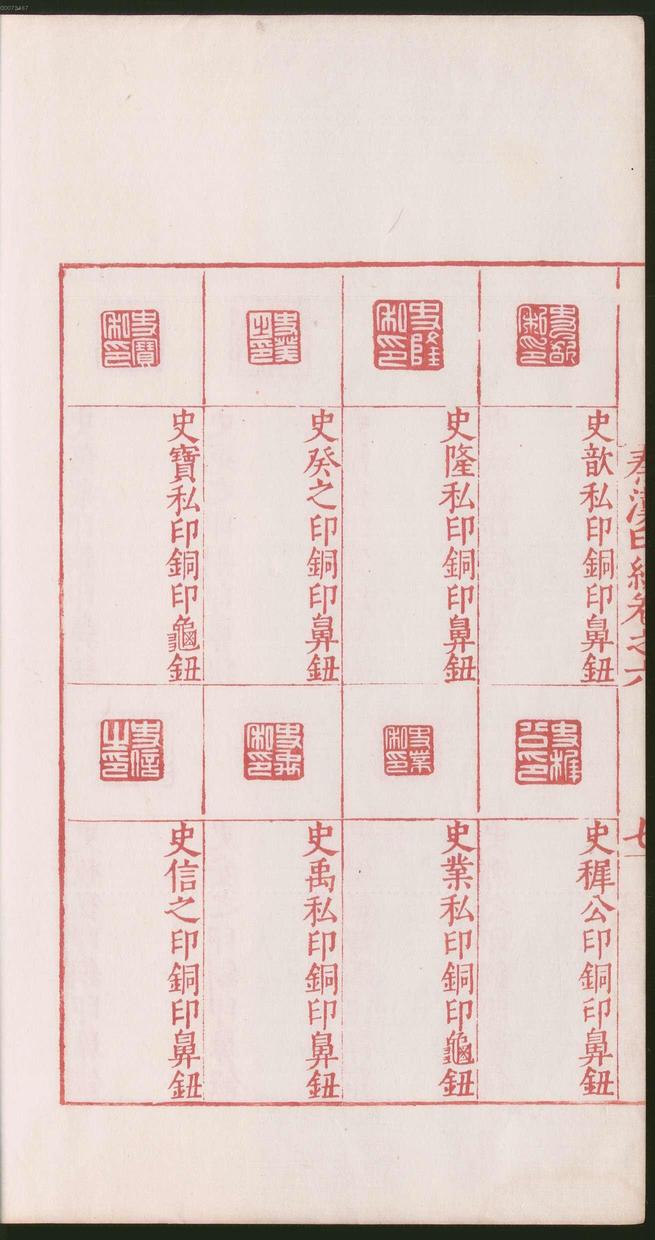 00073467
秦漢印統卷之六
七
史歆私印銅印鼻鈕
史隆私印銅印鼻鈕
史癸之印銅印鼻鈕
史寶私印銅印龜鈕
史穉公印銅印鼻鈕
史業私印銅印龜鈕
史禹私印銅印鼻鈕
史信之印銅印鼻鈕